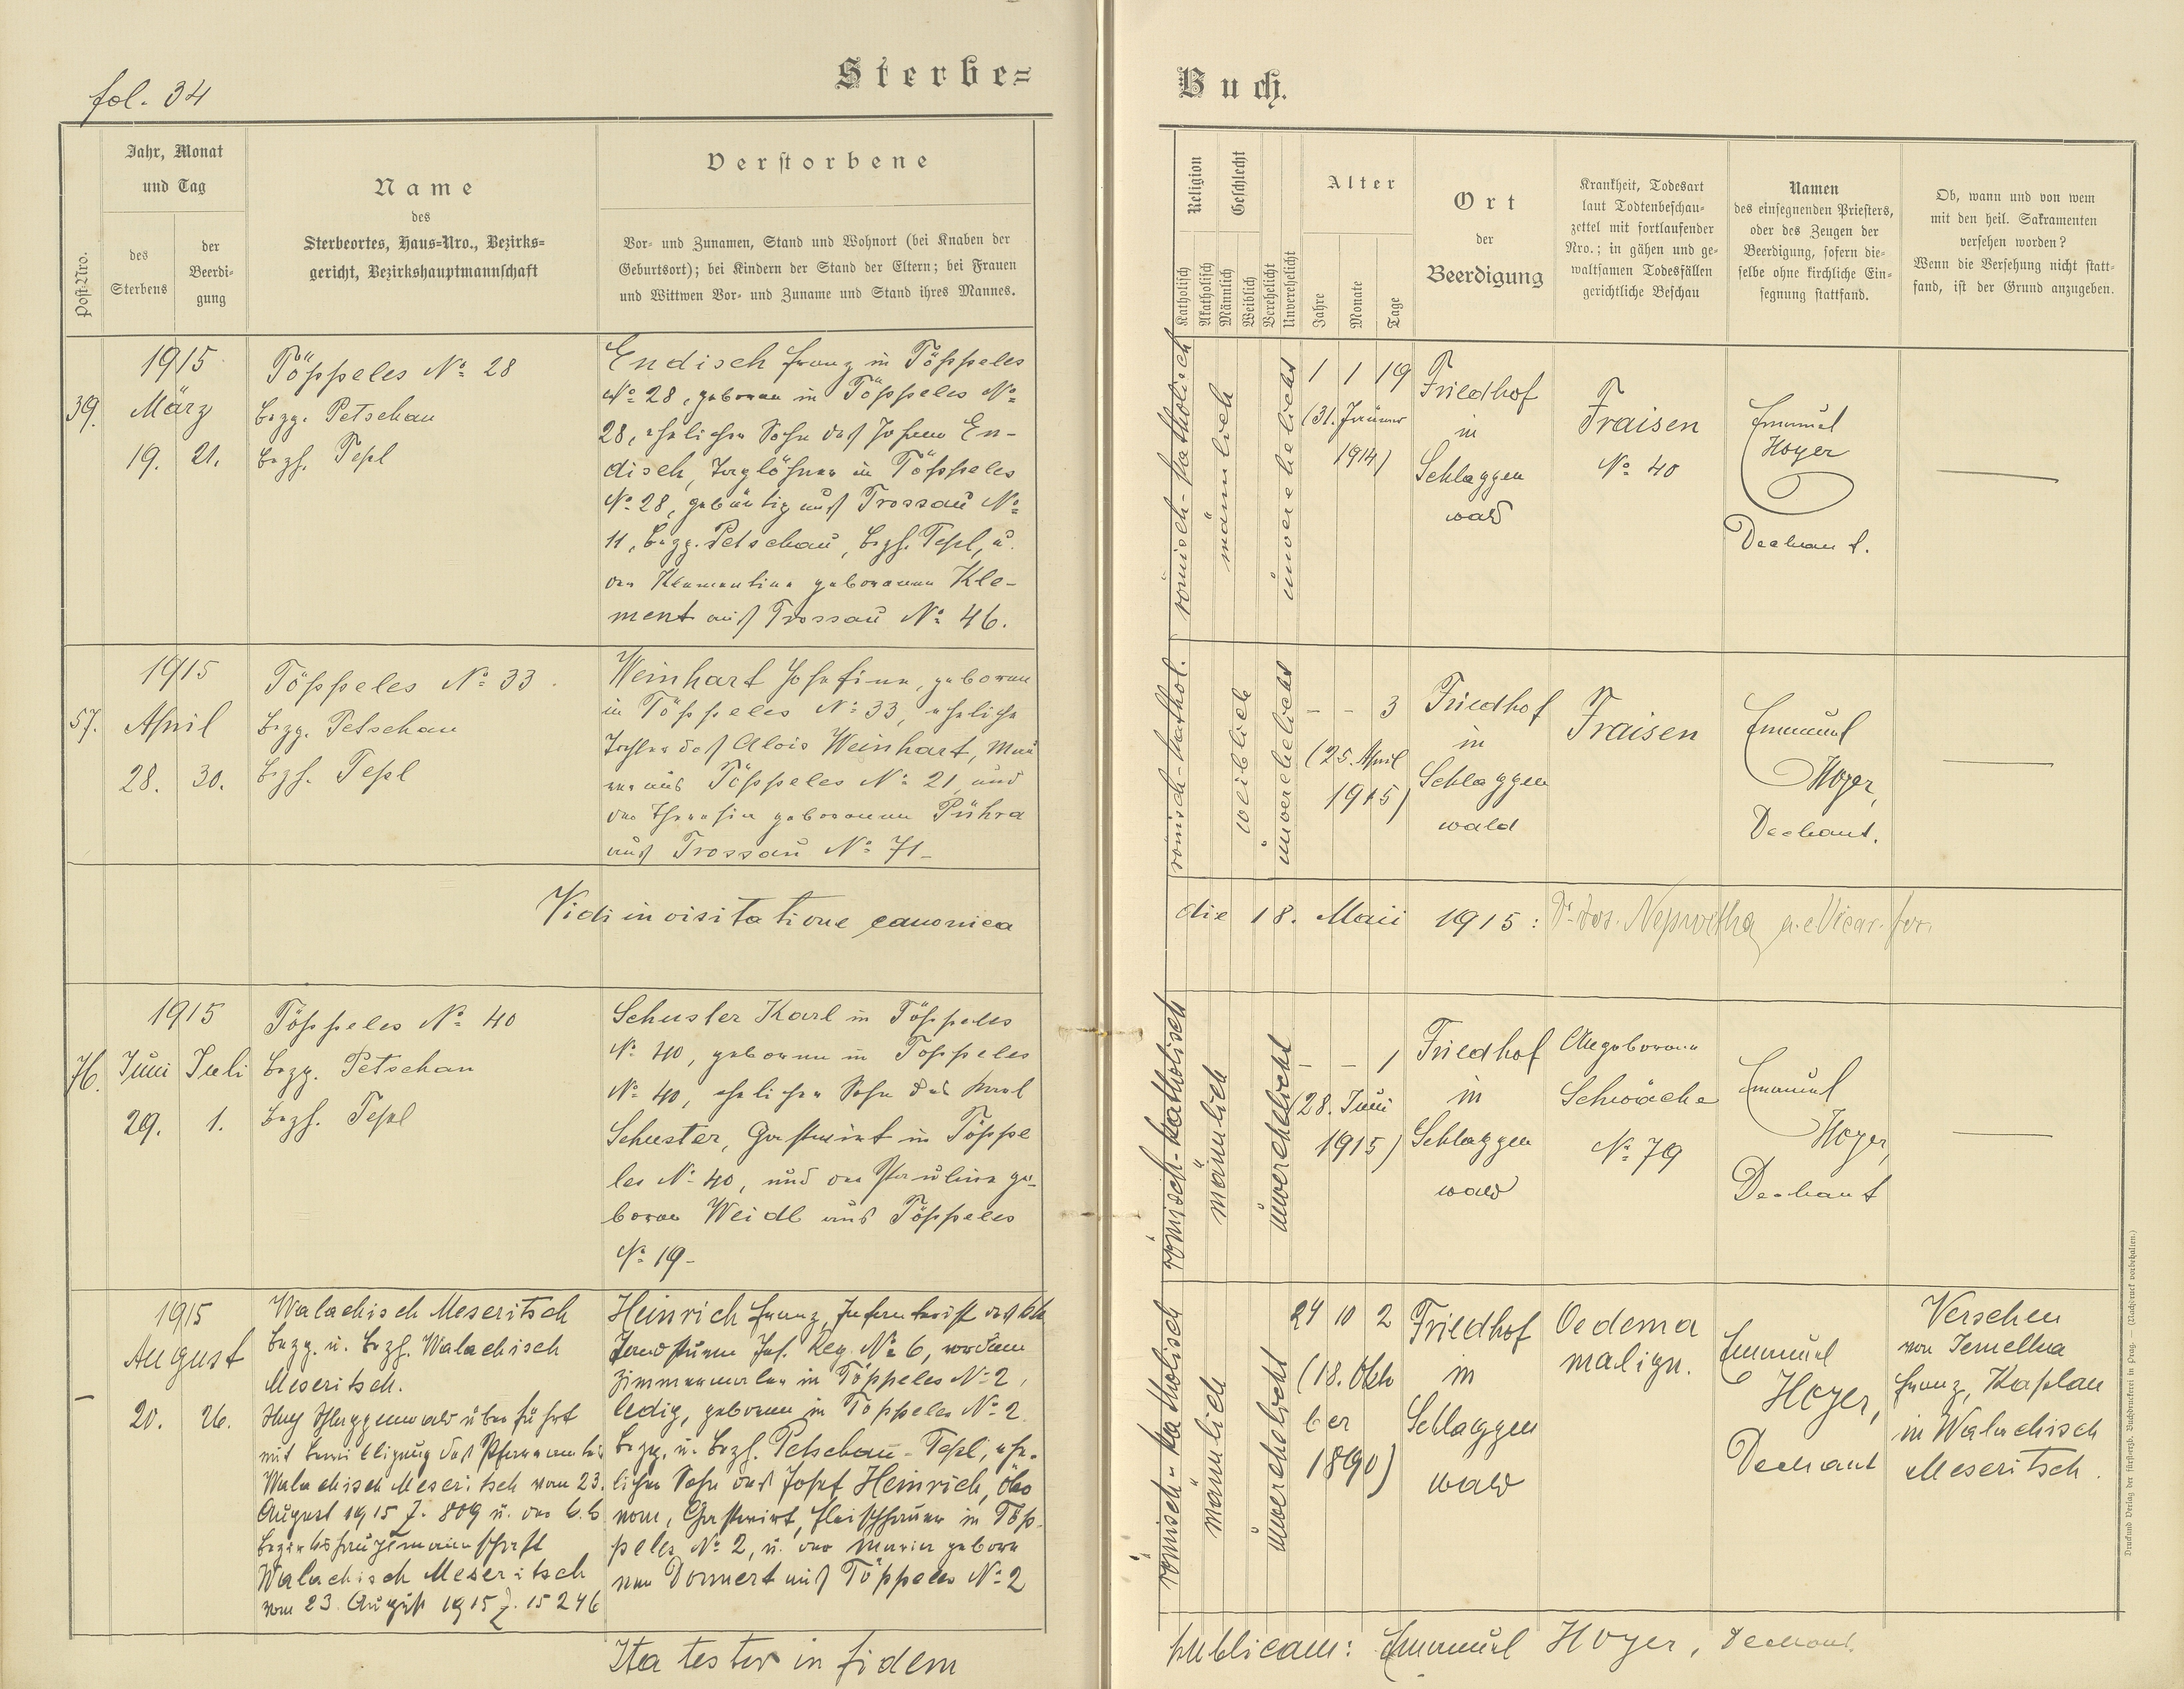 fol. 34
Sterbe=
Buch.
Post-Nro.
Jahr, Monat
und Tag
des
Sterbens
der
Beerdi-
gung
Name
des
Sterbeortes, Haus=Nro., Bezirks=
gericht, Bezirkshauptmannschaft
Verstorbene
Vor- und Zunamen, Stand und Wohnort (bei Knaben der
Geburtsort); bei Kindern der Stand der Eltern; bei Frauen
und Wittwen Vor- und Zuname und Stand ihres Mannes.
Religion
Katholisch
Akatholisch
Geschlecht
Männlich
Weiblich
Verehelicht
Unverehelicht
Alter
Jahre
Monate
Tage
Ort
der
Beerdigung
Krankheit, Todesart
laut Todtenbeschau-
zettel mit fortlaufender
Nro.; in gähen und ge-
waltsamen Todesfällen
gerichtliche Beschau
Namen
des einsegnenden Priesters,
oder des Zeugen der
Beerdigung, sofern die-
selbe ohne kirchliche Ein-
segnung stattfand.
Ob, wann und von wem
mit den heil. Sakramenten
versehen worden?
Wenn die Versehung nicht statt-
fand, ist der Grund anzugeben.
39.
1915
März
19. 21.
Töppeles No 28
Bezg. Petschau
Bezh. Tepl
Endisch Franz in Töppeles
No 28, geboren in Töppeles No
28, ehelicher Sohn des Johann En-
disch, Taglöhner in Töppeles
No 28, gebürtig aus Trossau No
11, Bezg. Petschau, Bezh. Tepl, u.
der Klementine geborenen Kle-
ment aus Trossau No 46.
römisch-katholisch
männlich
unverehelicht
1 1 19
(31. Jänner
1914)
Friedhof
in
Schlaggen
wald
Fraisen
No 40
Emanuel
Hoyer
Dechant.
57.
1915
April
28. 30.
Töppeles No 33.
Bezg. Petschau
Bezh. Tepl
Weinhart Josefine, geboren
in Töppeles No 33, eheliche
Tochter des Alois Weinhart, Mau
rer aus Töppeles No 21, und
der Theresia geborenen Pühra
aus Trossau No 71-
römisch-kathol.
weiblich
unverehelicht
- - 3
(25. April
1915)
Friedhof
in
Schlaggen
wald
Fraisen
Emanuel
Hoyer,
Dechant.
Vidi in visitatione canonica
die 18. Maii 1915:
76.
1915
Juni Juli
29. 1.
Töppeles No 40
Bezg. Petschau
Bezh. Tepl
Schuster Karl in Töppeles
No 40, geboren in Töppeles
No 40, ehelicher Sohn des Karl
Schuster, Gastwirt in Töppe
les No 40, und der Pauline ge-
boren Weidl aus Töppeles
No 19-
römisch-katholisch
männlich
unverehelicht
- - 1
(28. Juni
1915)
Friedhof
in
Schlaggen
wald
Angeborene
Schwäche
No 79
Emanuel
Hoyer,
Dechant
-
1915
August
20. 26.
Walachisch Meseritsch
Bezg. u. Bezh. Walachisch
Meseritsch.
Nach Schlaggenwald überführt
mit Bewilligung des Pfarramtes
Walachisch Meseritsch vom 23.
August 1915 Z. 809 u. der k.k.
Bezirkshauptmannschaft
Walachisch Meseritsch
vom 23. August 1915 Z. 15246
Heinrich Franz, Infanterist des kk
Landsturm Inf. Reg. No 6, vordem
Zimmermaler in Töppeles No 2,
ledig, geboren in Töppeles No 2
Bezg. u. Bezh. Petschau-Tepl, ehe-
licher Sohn des Josef Heinrich, Öko
nom, Gastwirt, Fleischhauer in Töp-
peles No 2, u. der Maria gebore
nen Donnert aus Töppeles No 2
römisch-katholisch
männlich
unverehelicht
24 10 2
(18. Okto
ber
1890)
Friedhof
in
Schlaggen
wald
Oedema
malign.
Emanuel
Hoyer,
Dechant
Versehen
von
Franz, Kaplan
in Walachisch
Meseritsch.
Ita testor in fidem
publicam: Emanuel Hoyer, Dechant.
Druck und Verlag der fürsterzb. Buchdruckerei in Prag. — (Nachdruck vorbehalten.)